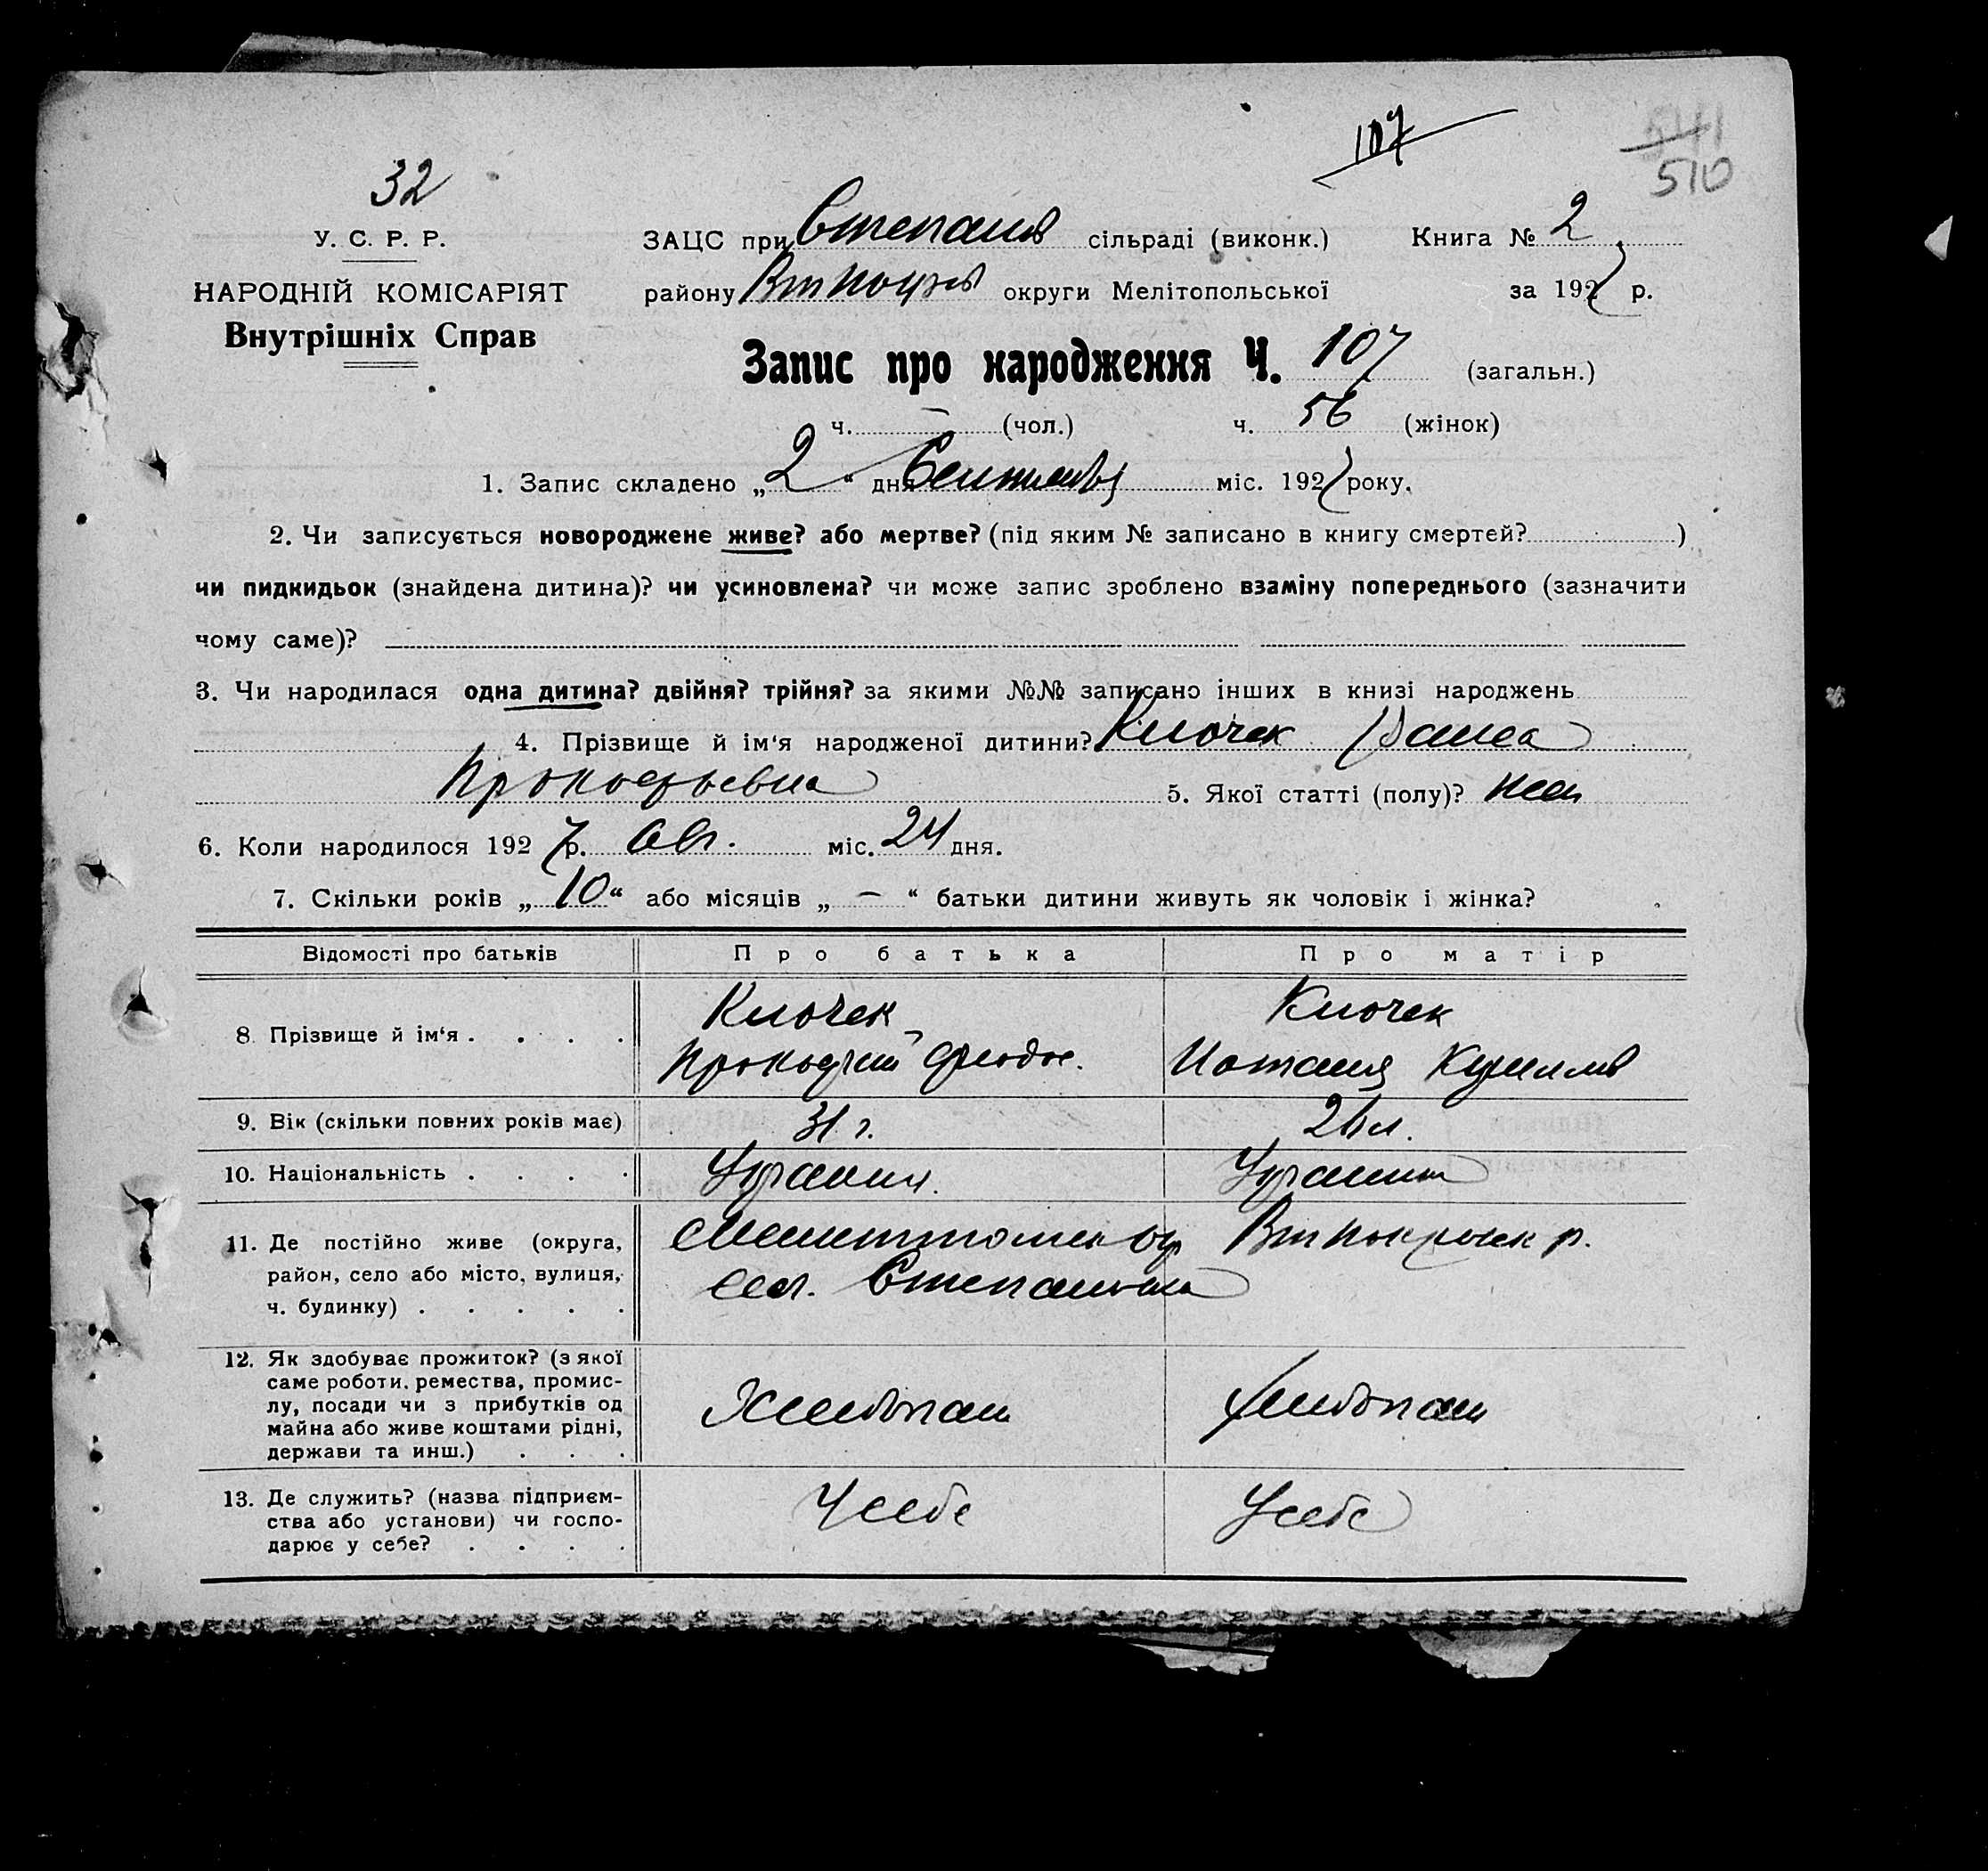 107
541
510
32
У. С. Р. Р.
НАРОДНІЙ КОМІСАРІЯТ
Внутрішніх Справ
ЗАЦС при Степанів сільраді (виконк.) Книга № 2
району округи Мелітопольської за 1927 р.
Запис про народження Ч. 107 (загальн.)
ч. — (чол.) ч. 56 (жінок)
1. Запис складено „2“ дня Сентября міс. 1927 року.
2. Чи записується новороджене живе? або мертве? (під яким № записано в книгу смертей? )
чи пидкидьок (знайдена дитина)? чи усиновлена? чи може запис зроблено взаміну попереднього (зазначити
чому саме)?
3. Чи народилася одна дитина? двійня? трійня? за якими №№ записано інших в книзі народжень
4. Прізвище й ім‘я народженої дитини? Клочек
Прокофьевна 5. Якої статті (полу)? жен
6. Коли народилося 1927 р. Авг. міс. 24 дня.
7. Скільки років „10“ або місяців „ — “ батьки дитини живуть як чоловік і жінка?
Відомості про батьків Про батька Про матір
8. Прізвище й ім‘я . . . . Клочек Клочек
Прокофий Федос. Наталия Кирилов
9. Вік (скільки повних років має) 31 г. 26 л.
10. Національність . . . . Украин. Украинка
11. Де постійно живе (округа,
район, село або місто, вулиця,
ч. будинку) . . . . .
Мелитопольск ок Вт Покровск р.
сел. Степановка
12. Як здобуває прожиток? (з якої
саме роботи, ремества, промис-
лу, посади чи з прибутків од
майна або живе коштами рідні,
держави та инш.) . . .
Хлебопаш Хлебопаш
13. Де служить? (назва підприєм-
ства або установи) чи госпо-
дарює у себе? . . . .
У себе У себе